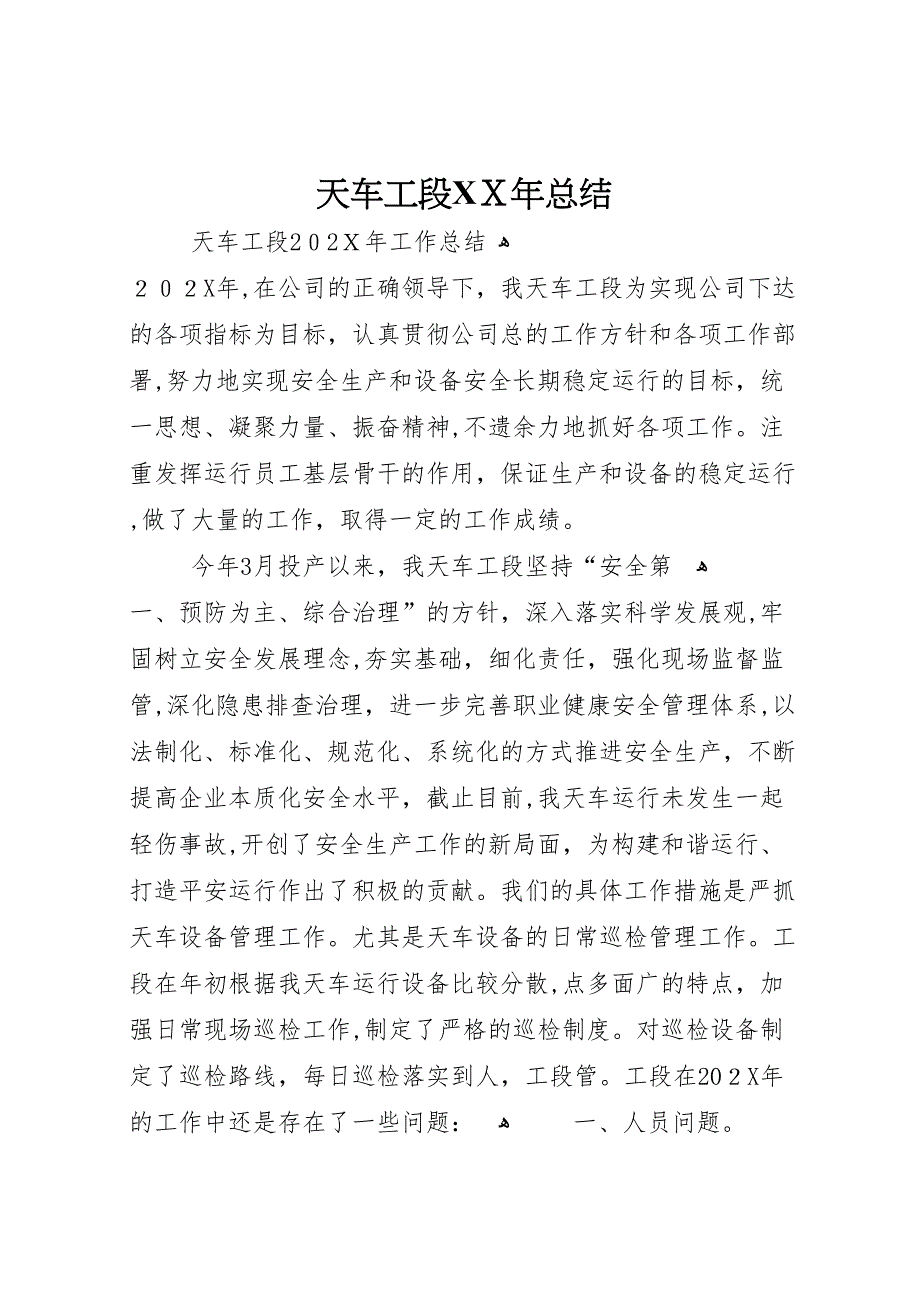 天车工段XX年总结
天车工段202X年工作总结 ﻫ
202X年,在公司的正确领导下，我天车工段为实现公司下达
的各项指标为目标，认真贯彻公司总的工作方针和各项工作部
署,努力地实现安全生产和设备安全长期稳定运行的目标，统
一思想、凝聚力量、振奋精神,不遗余力地抓好各项工作。注
重发挥运行员工基层骨干的作用，保证生产和设备的稳定运行
,做了大量的工作，取得一定的工作成绩。
今年3月投产以来，我天车工段坚持“安全第 ﻫ
一、预防为主、综合治理”的方针，深入落实科学发展观,牢
固树立安全发展理念,夯实基础，细化责任，强化现场监督监
管,深化隐患排查治理，进一步完善职业健康安全管理体系,以
法制化、标准化、规范化、系统化的方式推进安全生产，不断
提高企业本质化安全水平，截止目前,我天车运行未发生一起
轻伤事故,开创了安全生产工作的新局面，为构建和谐运行、
打造平安运行作出了积极的贡献。我们的具体工作措施是严抓
天车设备管理工作。尤其是天车设备的日常巡检管理工作。工
段在年初根据我天车运行设备比较分散,点多面广的特点，加
强日常现场巡检工作,制定了严格的巡检制度。对巡检设备制
定了巡检路线，每日巡检落实到人，工段管。工段在202X年
的工作中还是存在了一些问题： ﻫ 一、人员问题。